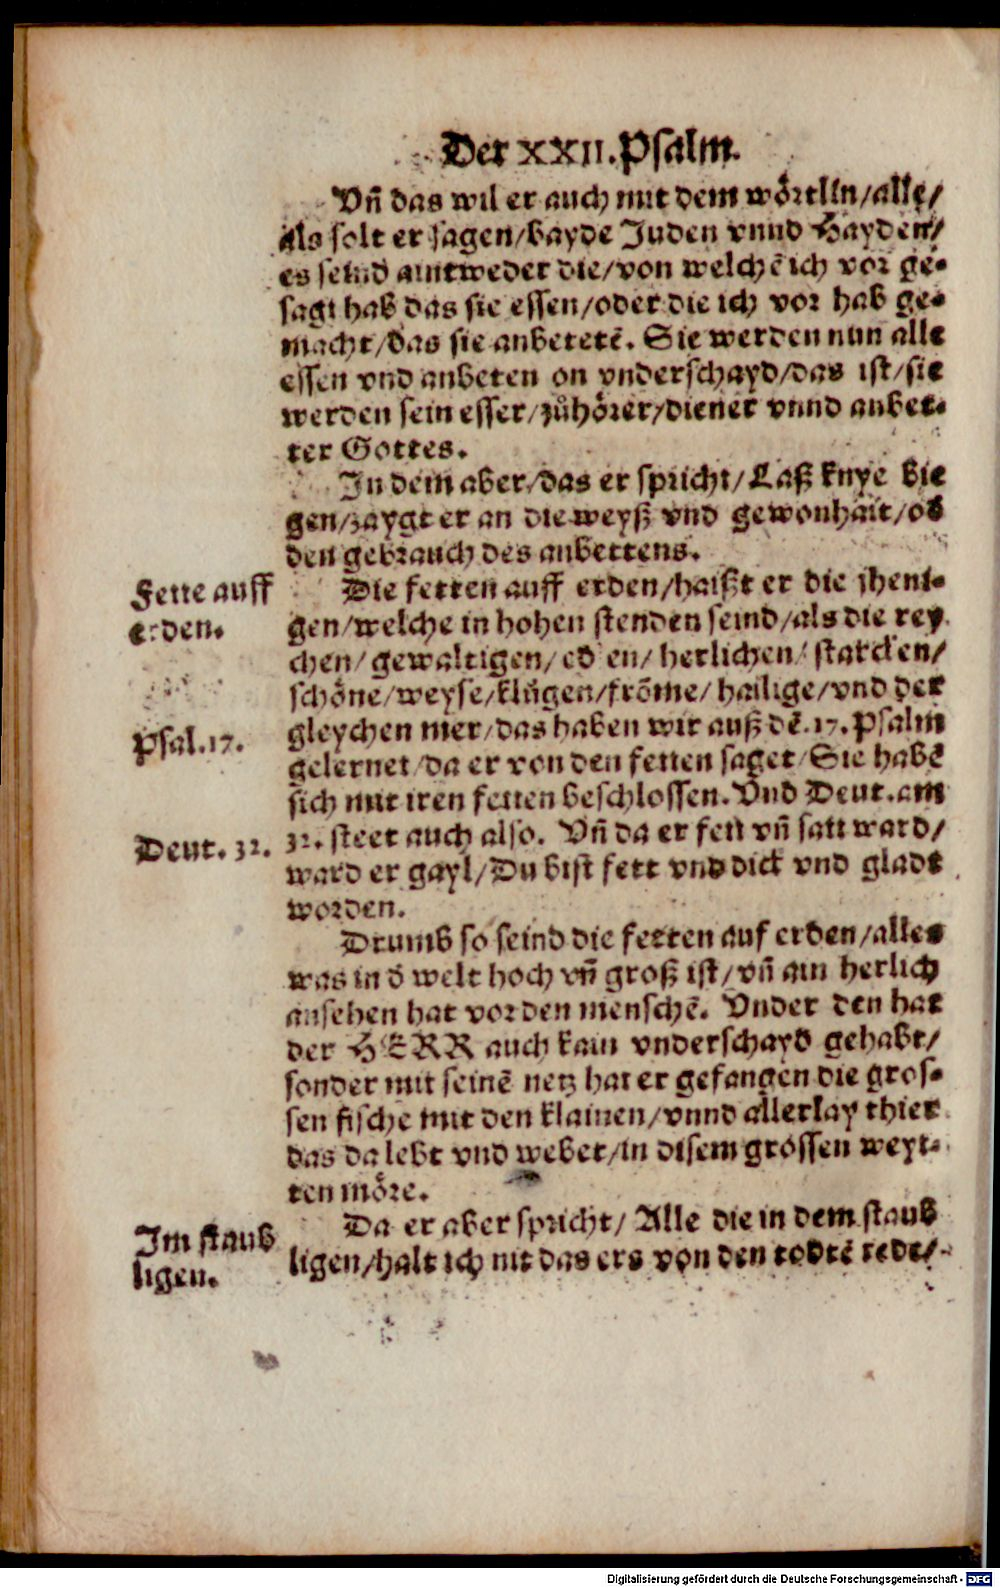 Der XXII. Psalm.
Vñ das wil er auch mit dem wörtlin/alle/
als solt er sagen/bayde Juden vnnd Hayden/
es seind aintweder die/von welchē ich vor ge-
sagt hab das sie essen/oder die ich vor hab ge-
macht/das sie anbetetē. Sie werden nun alle
essen vnd anbeten on vnderschayd/das ist/sie
werden sein esser/zůhörer/diener vnnd anbet-
ter Gottes.
In dem aber/das er spricht/Laß knye bie
gen/zaygt er an die weyß vnd gewonhait/od
den gebrauch des anbettens.
Fette auff
erden.
Die fetten auff erden/haißt er die iheni-
gen/welche in hohen stenden seind/als die rey
chen/gewaltigen/edlen/herlichen/starcken/
schöne/weyse/klůgen/frōme/hailige/vnd der
Psal.17.
gleychen mer/das haben wir auß dē.17.Psalm
gelernet/da er von den fetten saget/Sie habē
sich mit iren fetten beschlossen. Vnd Deut.am
Deut. 32.
32. steet auch also. Vñ da er fett vñ satt ward/
ward er gayl/Du bist fett vnd dick vnd gladt
worden.
Drumb so seind die fetten auf erden/alles
was in d̄ welt hoch vñ groß ist/vñ ain herlich
ansehen hat vor den menschē. Vnder den hat
der HERR auch kain vnderschayd gehabt/
sonder mit seinē netz hat er gefangen die gros-
sen fische mit den klainen/vnnd allerlay thier
das da lebt vnd webet/in disem grossen weyt-
ten möre.
Im staub
ligen.
Da er aber spricht/Alle die in dem staub
ligen/halt ich nit das ers von den todtē rede/
Digitalisierung gefördert durch die Deutsche Forschungsgemeinschaft - DFG